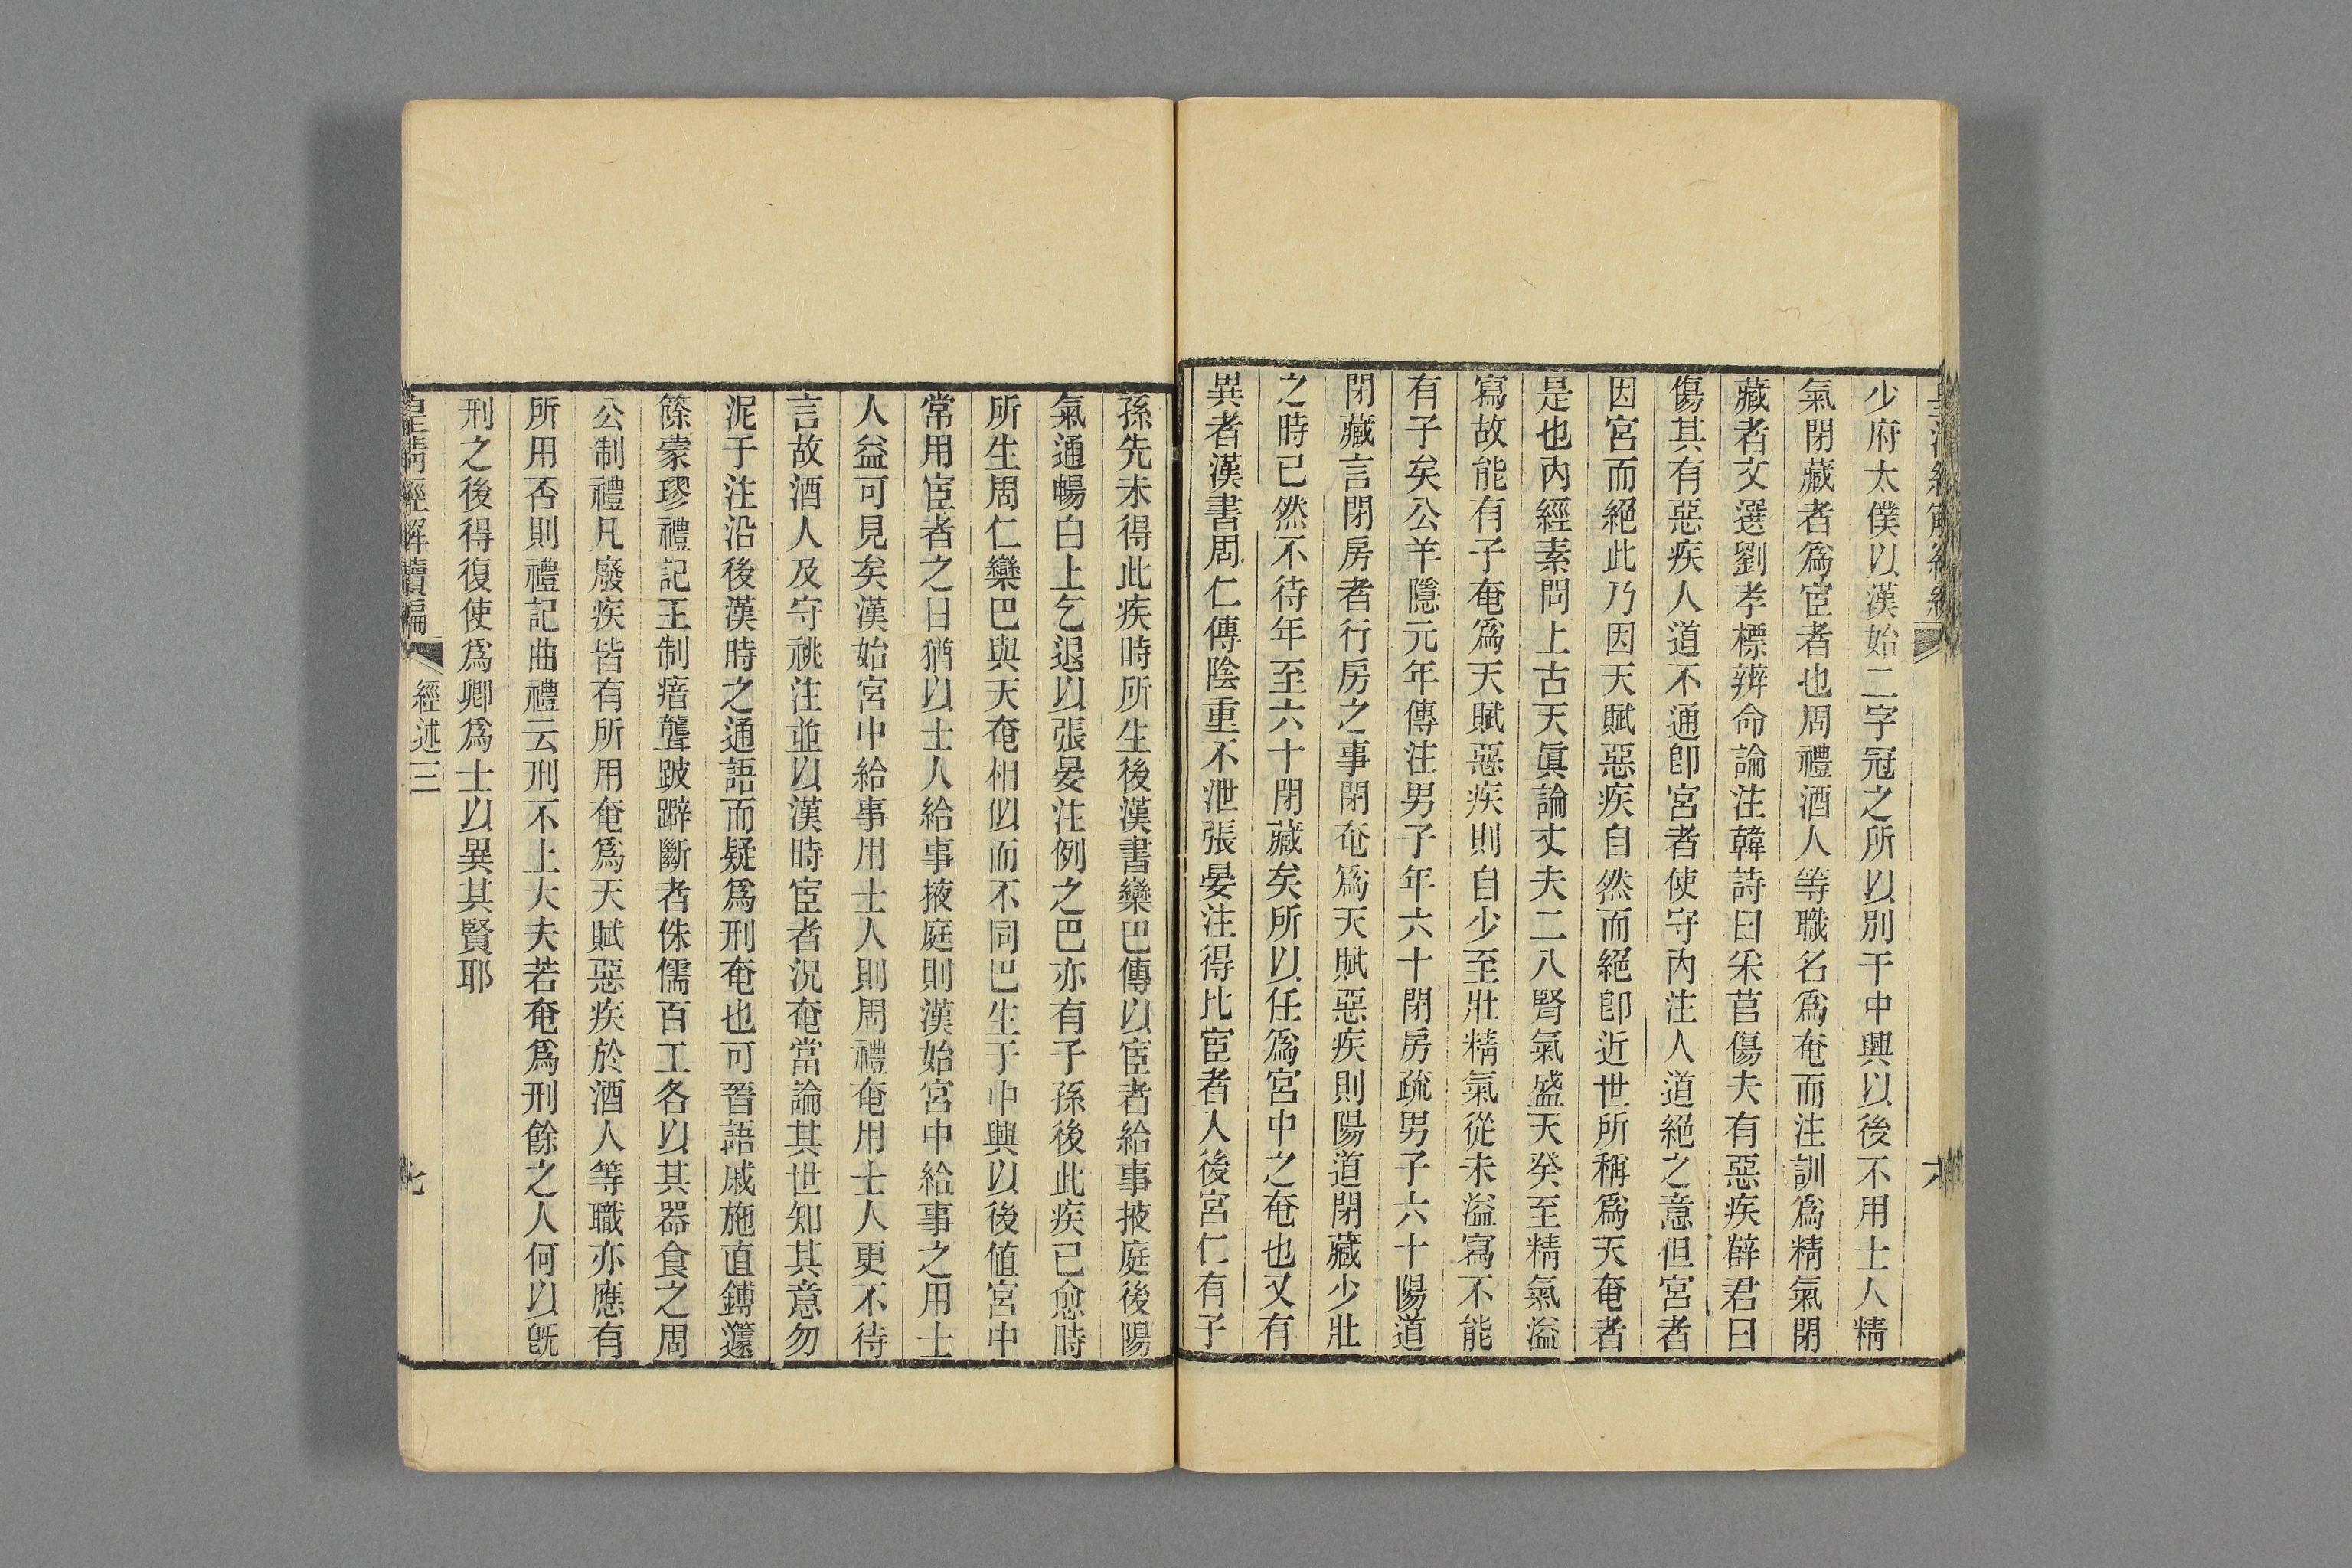 少府太僕以漢始二字冠之所以別于中興以後不用士人精
氣閉藏者爲宦者也周禮酒人等職名爲奄而注訓爲精氣閉
藏者文選劉孝標辨命論注韓詩曰采苢傷夫有惡疾薛君曰
傷其有惡疾人道不通卽宮者使守內注人道絕之意但宮者
因宮而絕此乃因天賦惡疾自然而絕卽近世所稱爲天奄者
是也內經素問上古天眞論丈夫二八腎氣盛天癸至精氣溢
寫故能有子奄爲天賦惡疾則自少至壯精氣從未溢寫不能
有子矣公羊隱元年傳注男子年六十閉房疏男子六十陽道
閉藏言閉房者行房之事閉奄爲天賦惡疾則陽道閉藏少壯
之時已然不待年至六十閉藏矣所以任爲宮中之奄也又有
異者漢書周仁傳陰重不泄張晏注得比宦者入後宮仁有子
孫先未得此疾時所生後漢書欒巴傳以宦者給事掖庭後陽
氣通暢白上乞退以張晏注例之巴亦有子孫後此疾已愈時
所生周仁欒巴與天奄相似而不同巴生于中興以後值宮中
常用宦者之日猶以士人給事掖庭則漢始宮中給事之用士
人益可見矣漢始宮中給事用士人則周禮奄用士人更不待
言故酒人及守祧注並以漢時宦者況奄當論其世知其意勿
泥于注沿後漢時之通語而疑爲刑奄也可晉語戚施直鎛籧
篨蒙璆禮記王制瘖聾跛躃斷者侏儒百工各以其器食之周
公制禮凡廢疾皆有所用奄爲天賦惡疾於酒人等職亦應有
所用否則禮記曲禮云刑不上大夫若奄爲刑餘之人何以旣
刑之後得復使爲卿爲士以異其賢耶
皇清經解續編
經述三
七